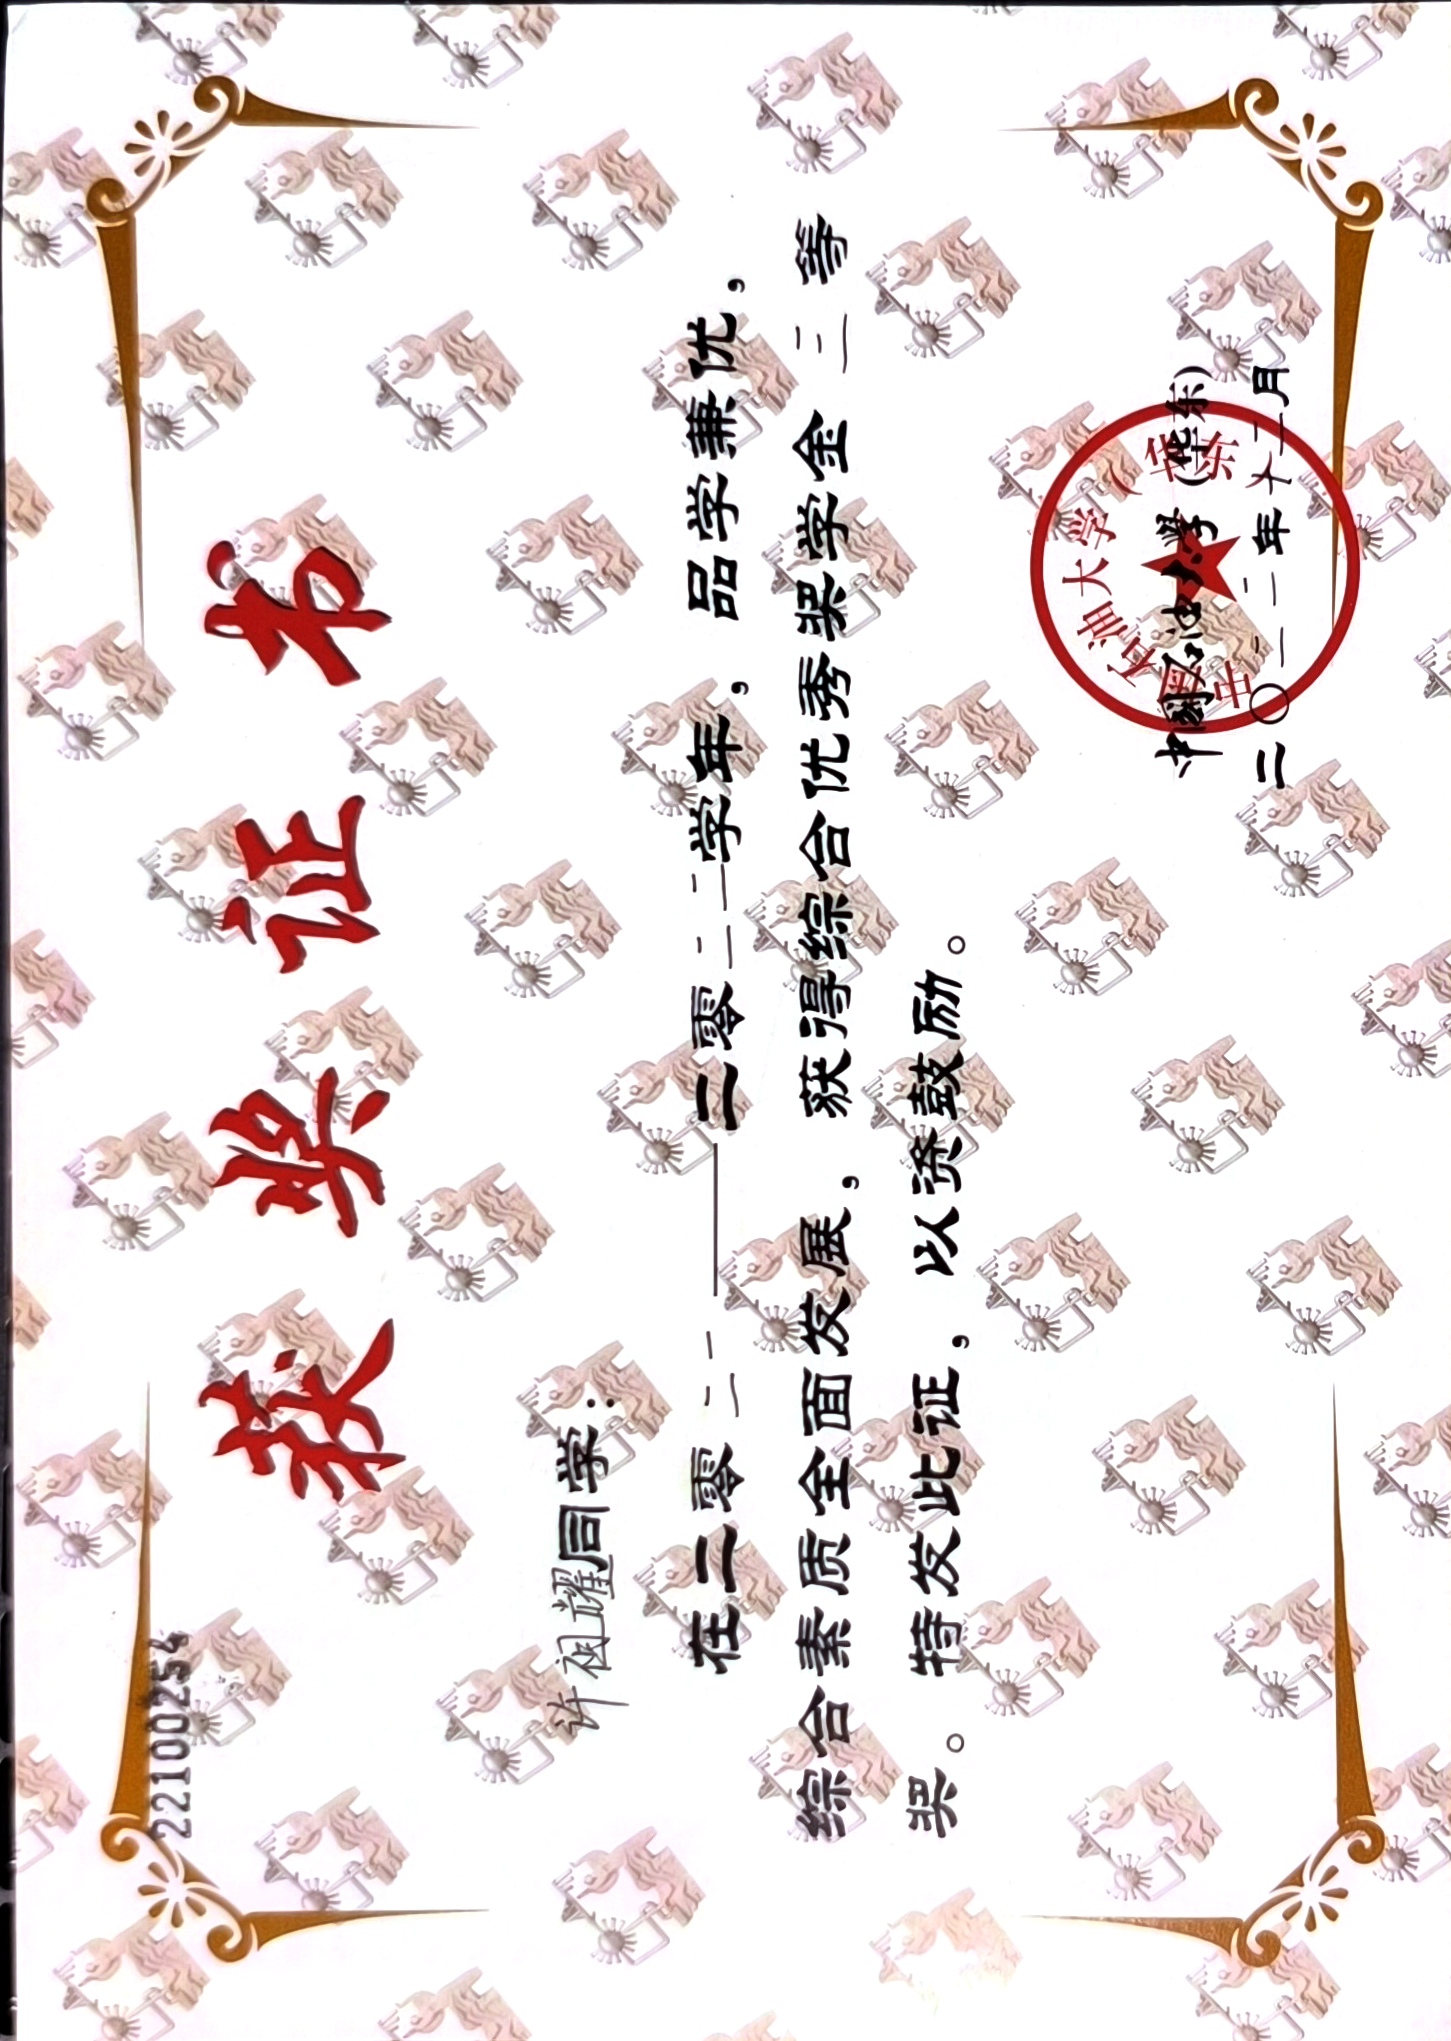 22100254
获奖证书
许祖耀同学：
在二零二一——二零二二学年，品学兼优，
综合素质全面发展，获得综合优秀奖学金 三 等
奖。特发此证，以资鼓励。
中国石油大学（华东）
中国石油大学 (华东)
二〇二二年十二月